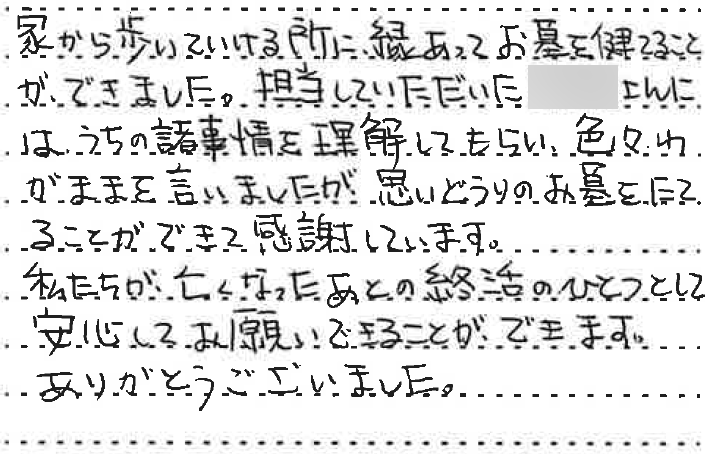 家から歩いていける所に縁あってお墓を健てること
ができました。担当していただいた　　　さんに
は、うちの諸事情を理解してもらい、色々わ
がままを言いましたが思いどうりのお墓をたて
ることができて感謝しています。
私たちが亡くなったあとの終活のひとつとして
安心してお願いできることができます。
ありがとうございました。